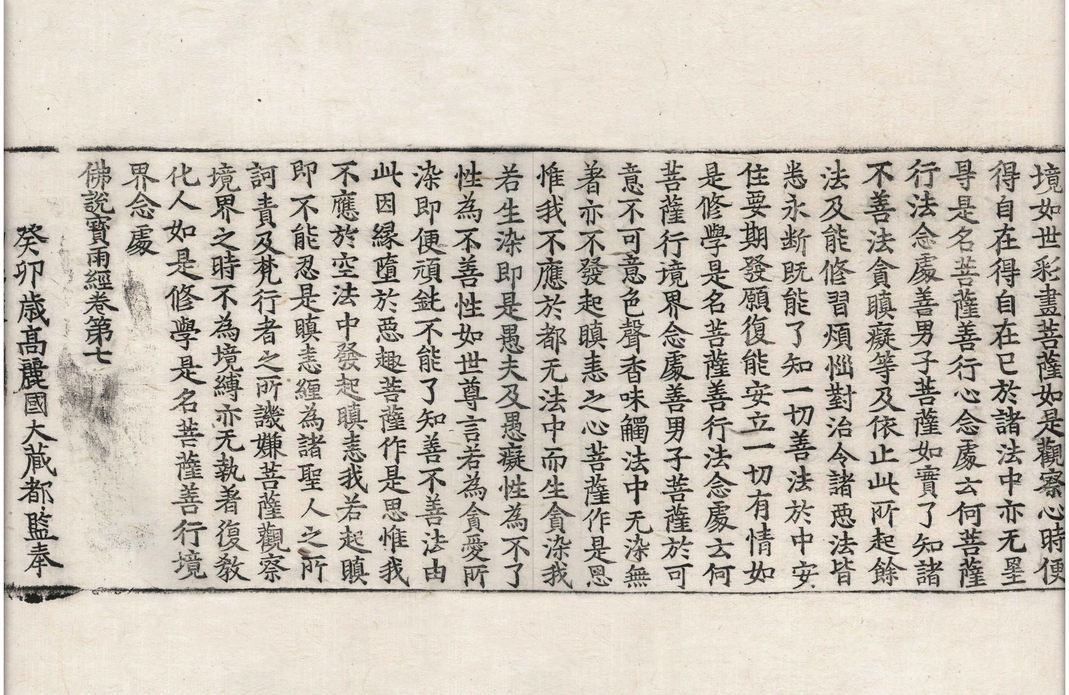 境如世彩畫菩薩如是觀察心時便
得自在得自在已於諸法中亦无罣
㝵是名菩薩善行心念處云何菩薩
行法念處善男子菩薩如實了知諸
不善法貪瞋癡等及依止此所起餘
法及能修習煩惱對治令諸惡法皆
悉永断既能了知一切善法於中安
住要期發願復能安立一切有情如
是修學是名菩薩善行法念處云何
菩薩行境界念處善男子菩薩於可
意不可意色聲香味觸法中无染無
著亦不發起瞋恚之心菩薩作是思
惟我不應於都无法中而生貪染我
若生染即是愚夫及愚癡性為不了
性為不善性如世尊言若為貪愛所
染即便頑鈍不能了知善不善法由
此因縁墮於惡趣菩薩作是思惟我
不應於空法中發起瞋恚我若起瞋
即不能忍是瞋恚纏為諸聖人之所
訶責及梵行者之所譏嫌菩薩觀察
境界之時不為境縛亦无執著復教
化人如是修學是名菩薩善行境
界念處
佛說寶雨經卷第七
癸卯歳高麗國大藏都監奉